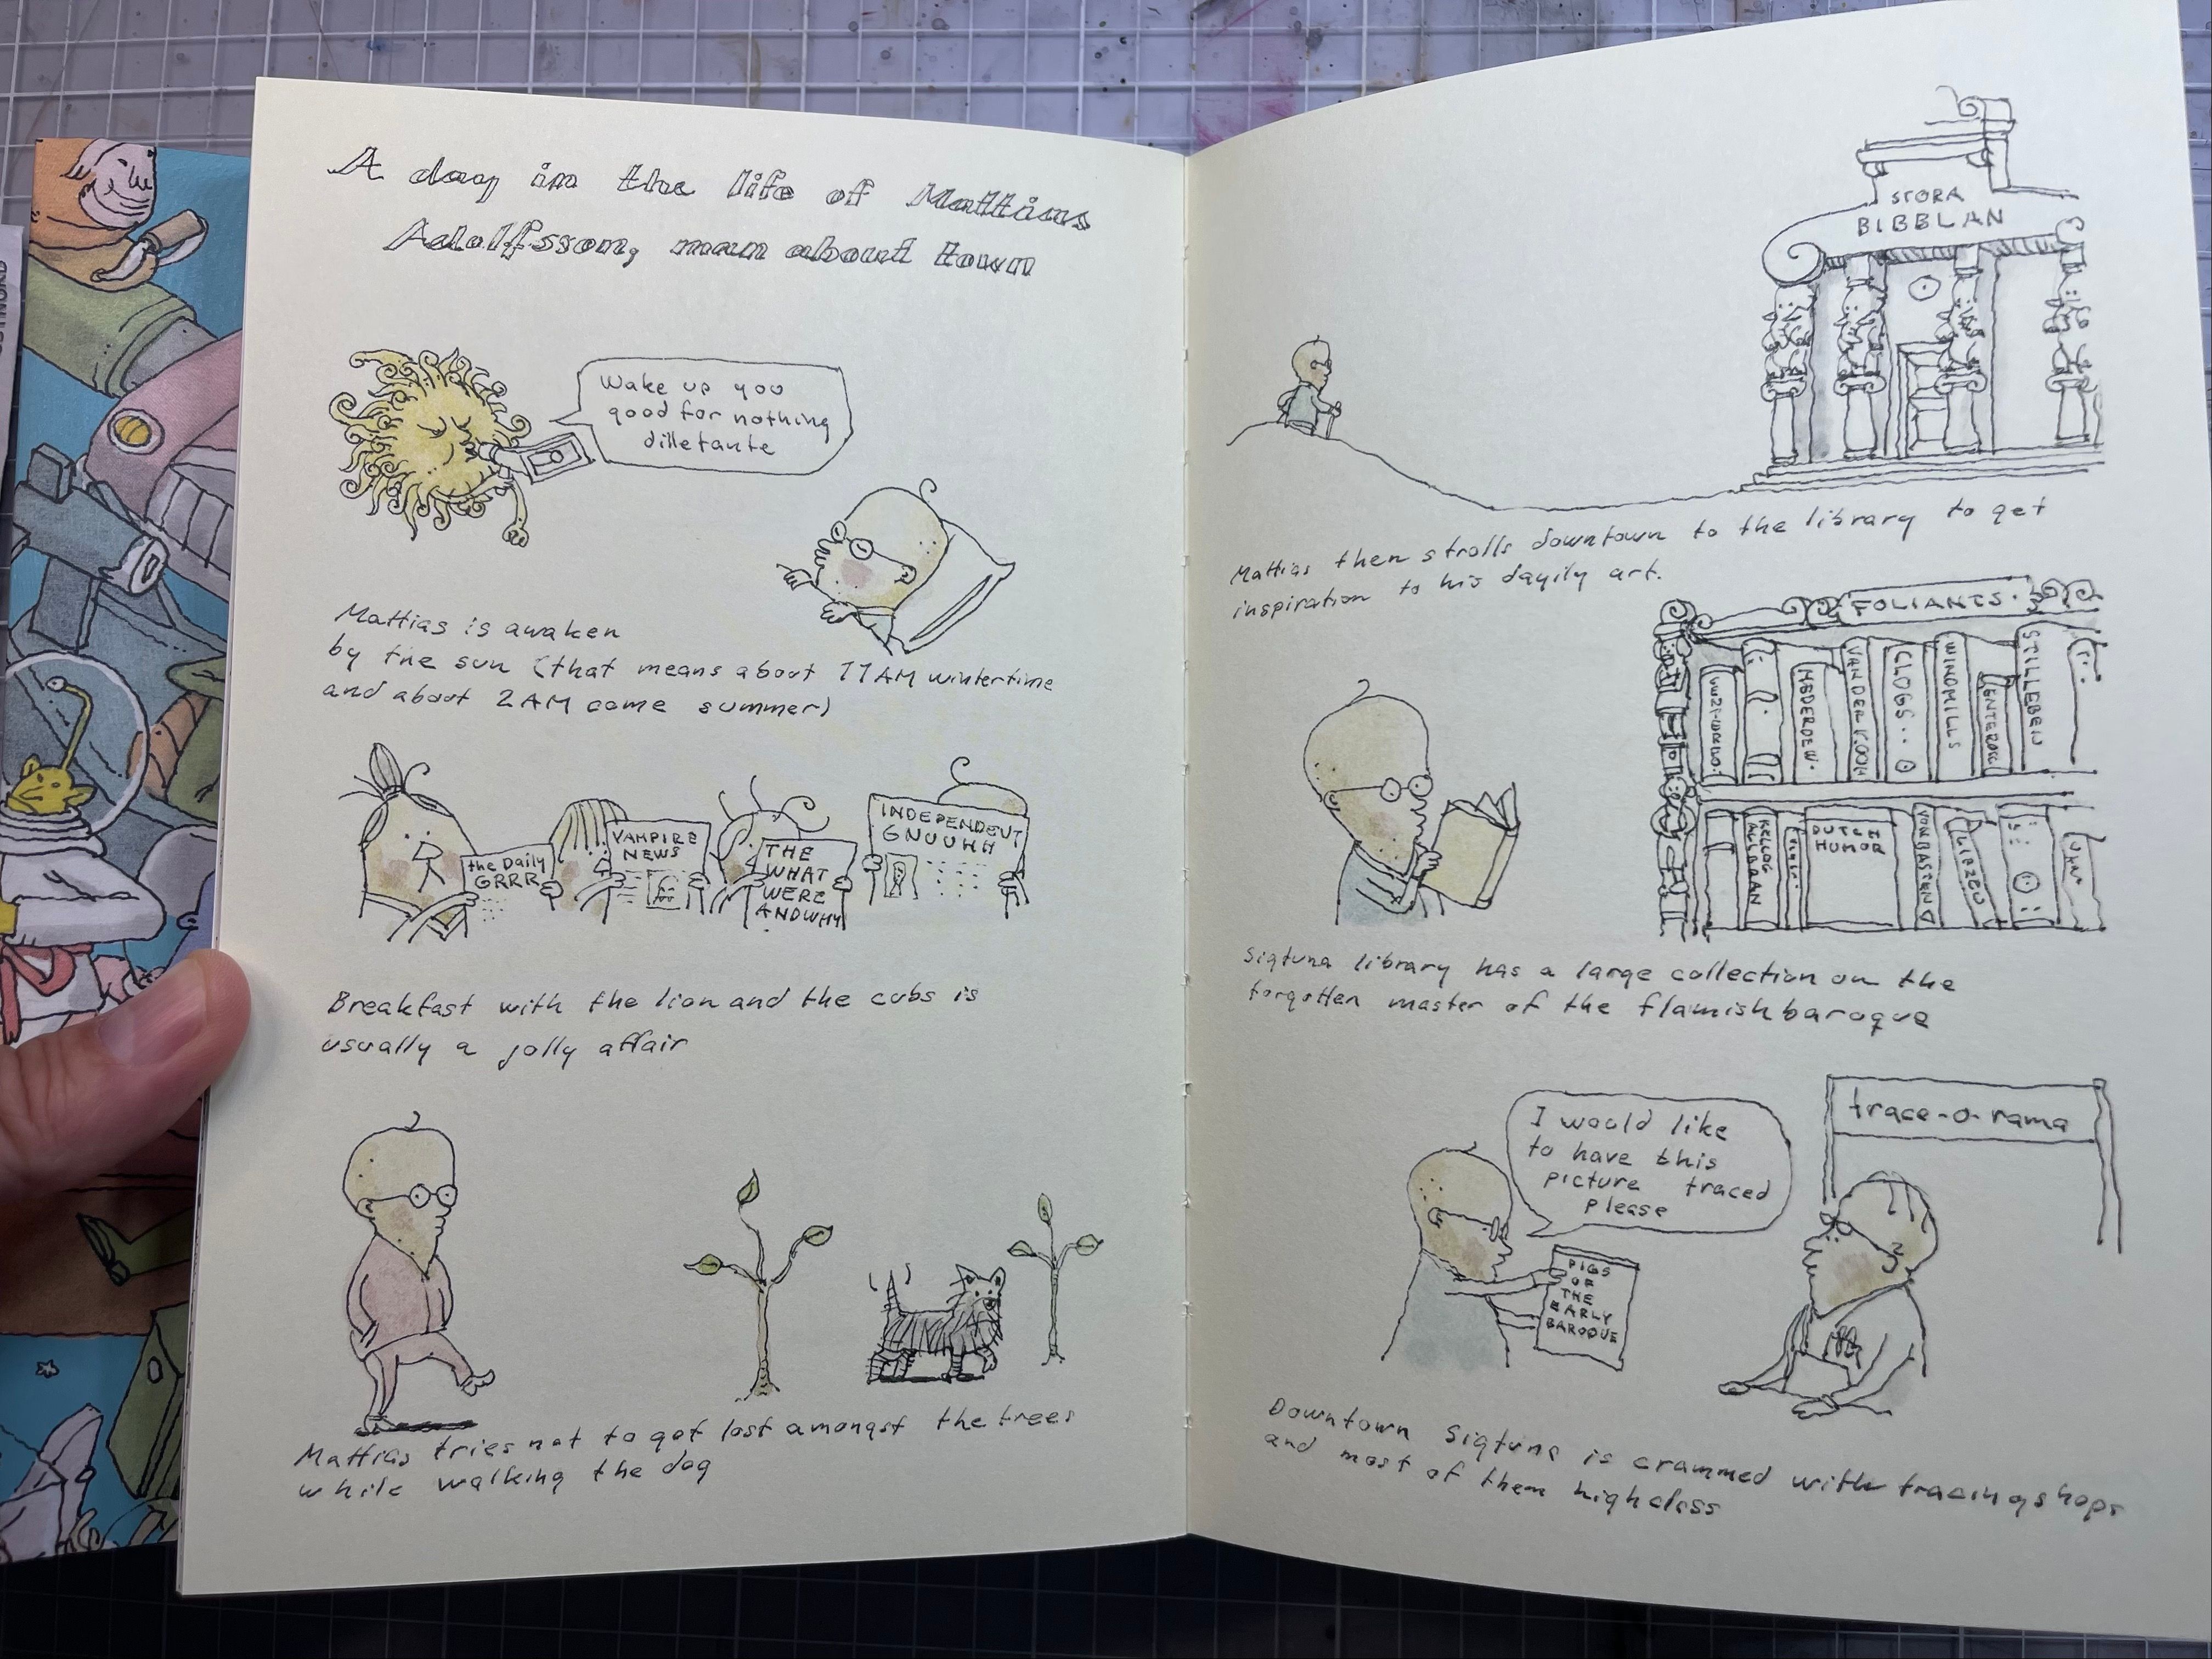 A day in the life of Mattias
Adolfsson, man about town
Wake up you
good for nothing
dilletante
Mattias is awaken
by the sun (that means about 11AM wintertime
and about 2AM come summer)
the Daily
GRRR
VAMPIRE
NEWS
THE
WHAT
WERE
ANDWHY
INDEPENDEUT
GNUUHH
Breakfast with the lion and the cubs is
usually a jolly affair
Mattias tries not to get lost amongst the trees
while walking the dog
STORA
BIBBLAN
Mattias then strolls downtown to the library to get
inspiration to his dayily art.
FOLIANTS.
VANDER KOOH
CLOGS..
WINDMILLS
STILLEBEN
DUTCH
HUMOR
Sigtuna library has a large collection on the
forgotten master of the flamish baroque
trace-o-rama
I would like
to have this
picture traced
please
PIGS
OF
THE
EARLY
BAROQUE
Downtown Sigtuna is crammed with tracingshops
and most of them highclass